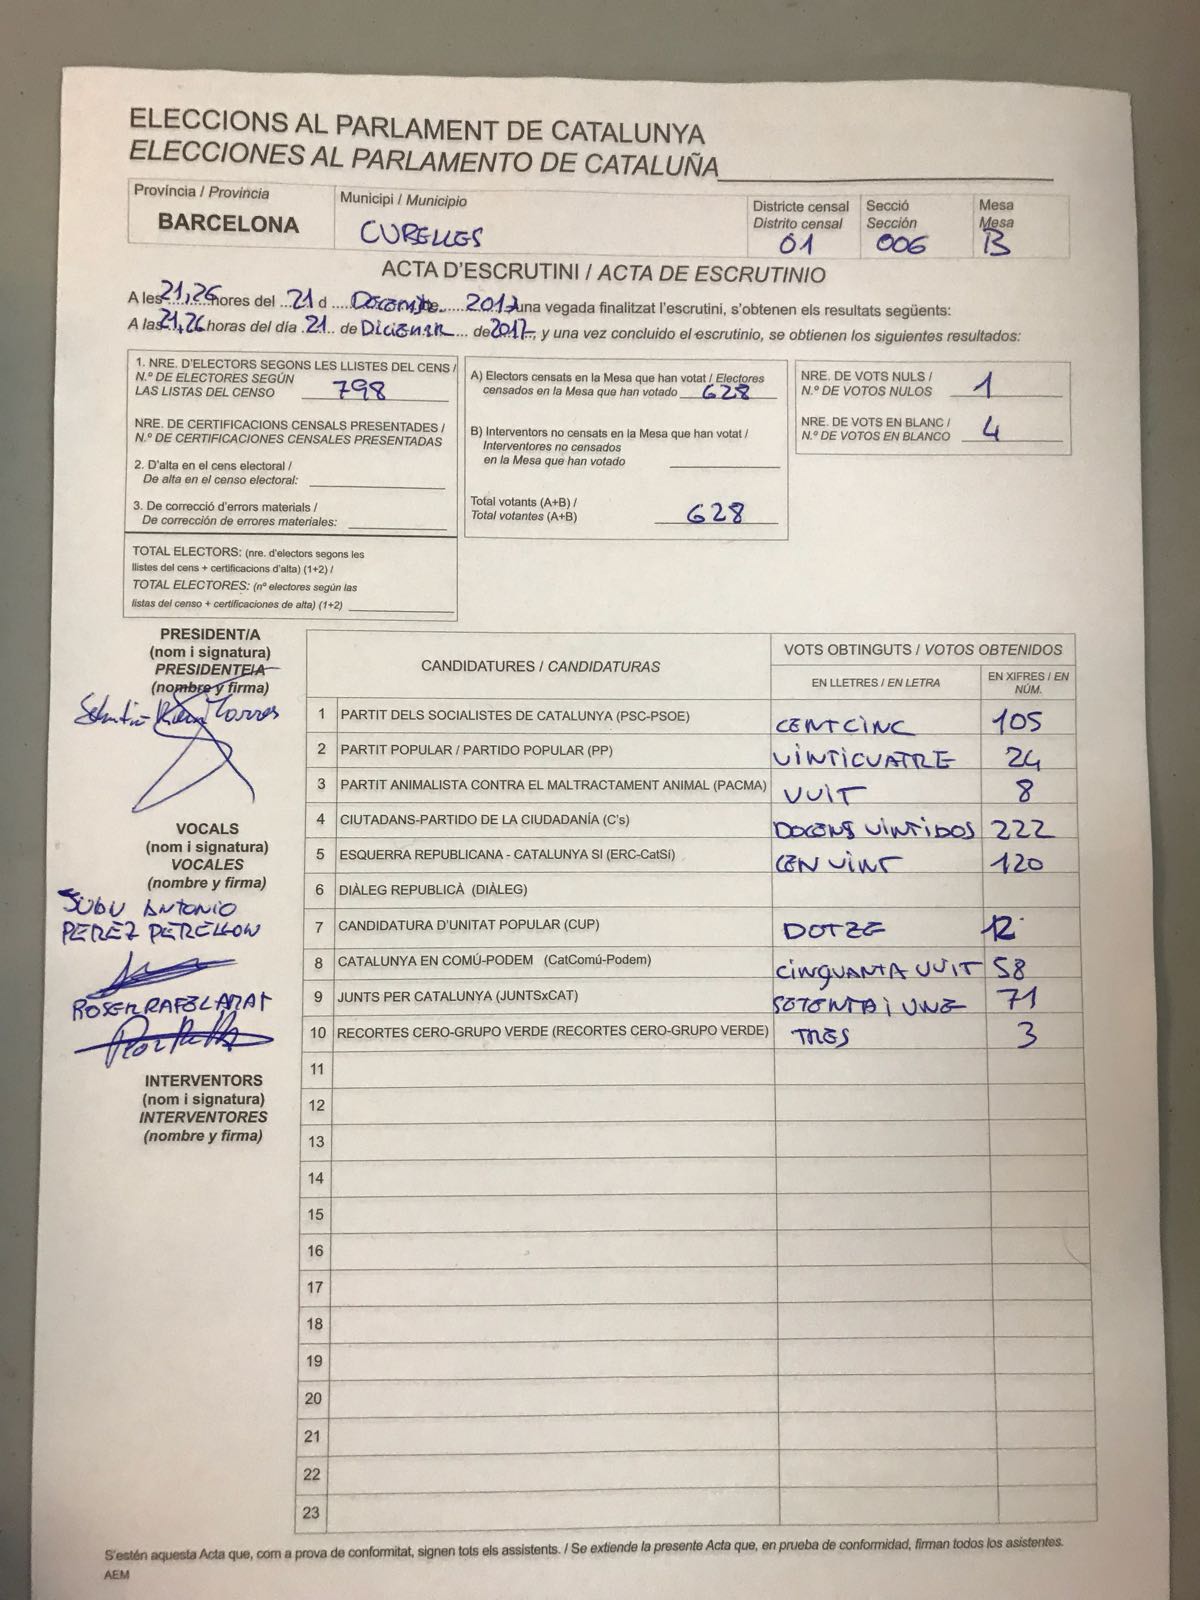 ELECCIONS AL PARLAMENT DE CATALUNYA
ELECCIONES AL PARLAMENTO DE CATALUÑA
Província / Provincia
BARCELONA
Municipi / Municipio
CUBELLES
Districte censal
Distrito censal
01
Secció
Sección
006
Mesa
Mesa
B
ACTA D'ESCRUTINI / ACTA DE ESCRUTINIO
A les 21,26 hores del 21 d 2017 una vegada finalitzat l'escrutini, s'obtenen els resultats següents:
A las 21,26 horas del día 21 de de 2017, y una vez concluido el escrutinio, se obtienen los siguientes resultados:
1. NRE. D'ELECTORS SEGONS LES LLISTES DEL CENS /
N.º DE ELECTORES SEGÚN
LAS LISTAS DEL CENSO 798
NRE. DE CERTIFICACIONS CENSALS PRESENTADES /
N.º DE CERTIFICACIONES CENSALES PRESENTADAS
2. D'alta en el cens electoral /
De alta en el censo electoral:
3. De correcció d'errors materials /
De corrección de errores materiales:
TOTAL ELECTORS: (nre. d'electors segons les
llistes del cens + certificacions d'alta) (1+2) /
TOTAL ELECTORES: (nº electores según las
listas del censo + certificaciones de alta) (1+2)
A) Electors censats en la Mesa que han votat / Electores
censados en la Mesa que han votado 628
B) Interventors no censats en la Mesa que han votat /
Interventores no censados
en la Mesa que han votado
Total votants (A+B) /
Total votantes (A+B) 628
NRE. DE VOTS NULS /
N.º DE VOTOS NULOS 1
NRE. DE VOTS EN BLANC /
N.º DE VOTOS EN BLANCO 4
PRESIDENT/A
(nom i signatura)
PRESIDENTE/A
(nombre y firma)
Torres
VOCALS
(nom i signatura)
VOCALES
(nombre y firma)
ANTONIO
PEREZ PERELLON
ROSER RAFEL AMAT
INTERVENTORS
(nom i signatura)
INTERVENTORES
(nombre y firma)
CANDIDATURES / CANDIDATURAS
VOTS OBTINGUTS / VOTOS OBTENIDOS
EN LLETRES / EN LETRA
EN XIFRES / EN
NÚM.
1 PARTIT DELS SOCIALISTES DE CATALUNYA (PSC-PSOE) CENT CINC 105
2 PARTIT POPULAR / PARTIDO POPULAR (PP) VINTICUATRE 24
3 PARTIT ANIMALISTA CONTRA EL MALTRACTAMENT ANIMAL (PACMA) VUIT 8
4 CIUTADANS-PARTIDO DE LA CIUDADANÍA (C's) DOCENS VINTIDOS 222
5 ESQUERRA REPUBLICANA - CATALUNYA SI (ERC-CatSí) CEN VINT 120
6 DIÀLEG REPUBLICÀ (DIÀLEG)
7 CANDIDATURA D'UNITAT POPULAR (CUP) DOTZE 12
8 CATALUNYA EN COMÚ-PODEM (CatComú-Podem) CINQUANTA VUIT 58
9 JUNTS PER CATALUNYA (JUNTSxCAT) SETENTA I UNE 71
10 RECORTES CERO-GRUPO VERDE (RECORTES CERO-GRUPO VERDE) TRES 3
11
12
13
14
15
16
17
18
19
20
21
22
23
S'estén aquesta Acta que, com a prova de conformitat, signen tots els assistents. / Se extiende la presente Acta que, en prueba de conformidad, firman todos los asistentes.
AEM